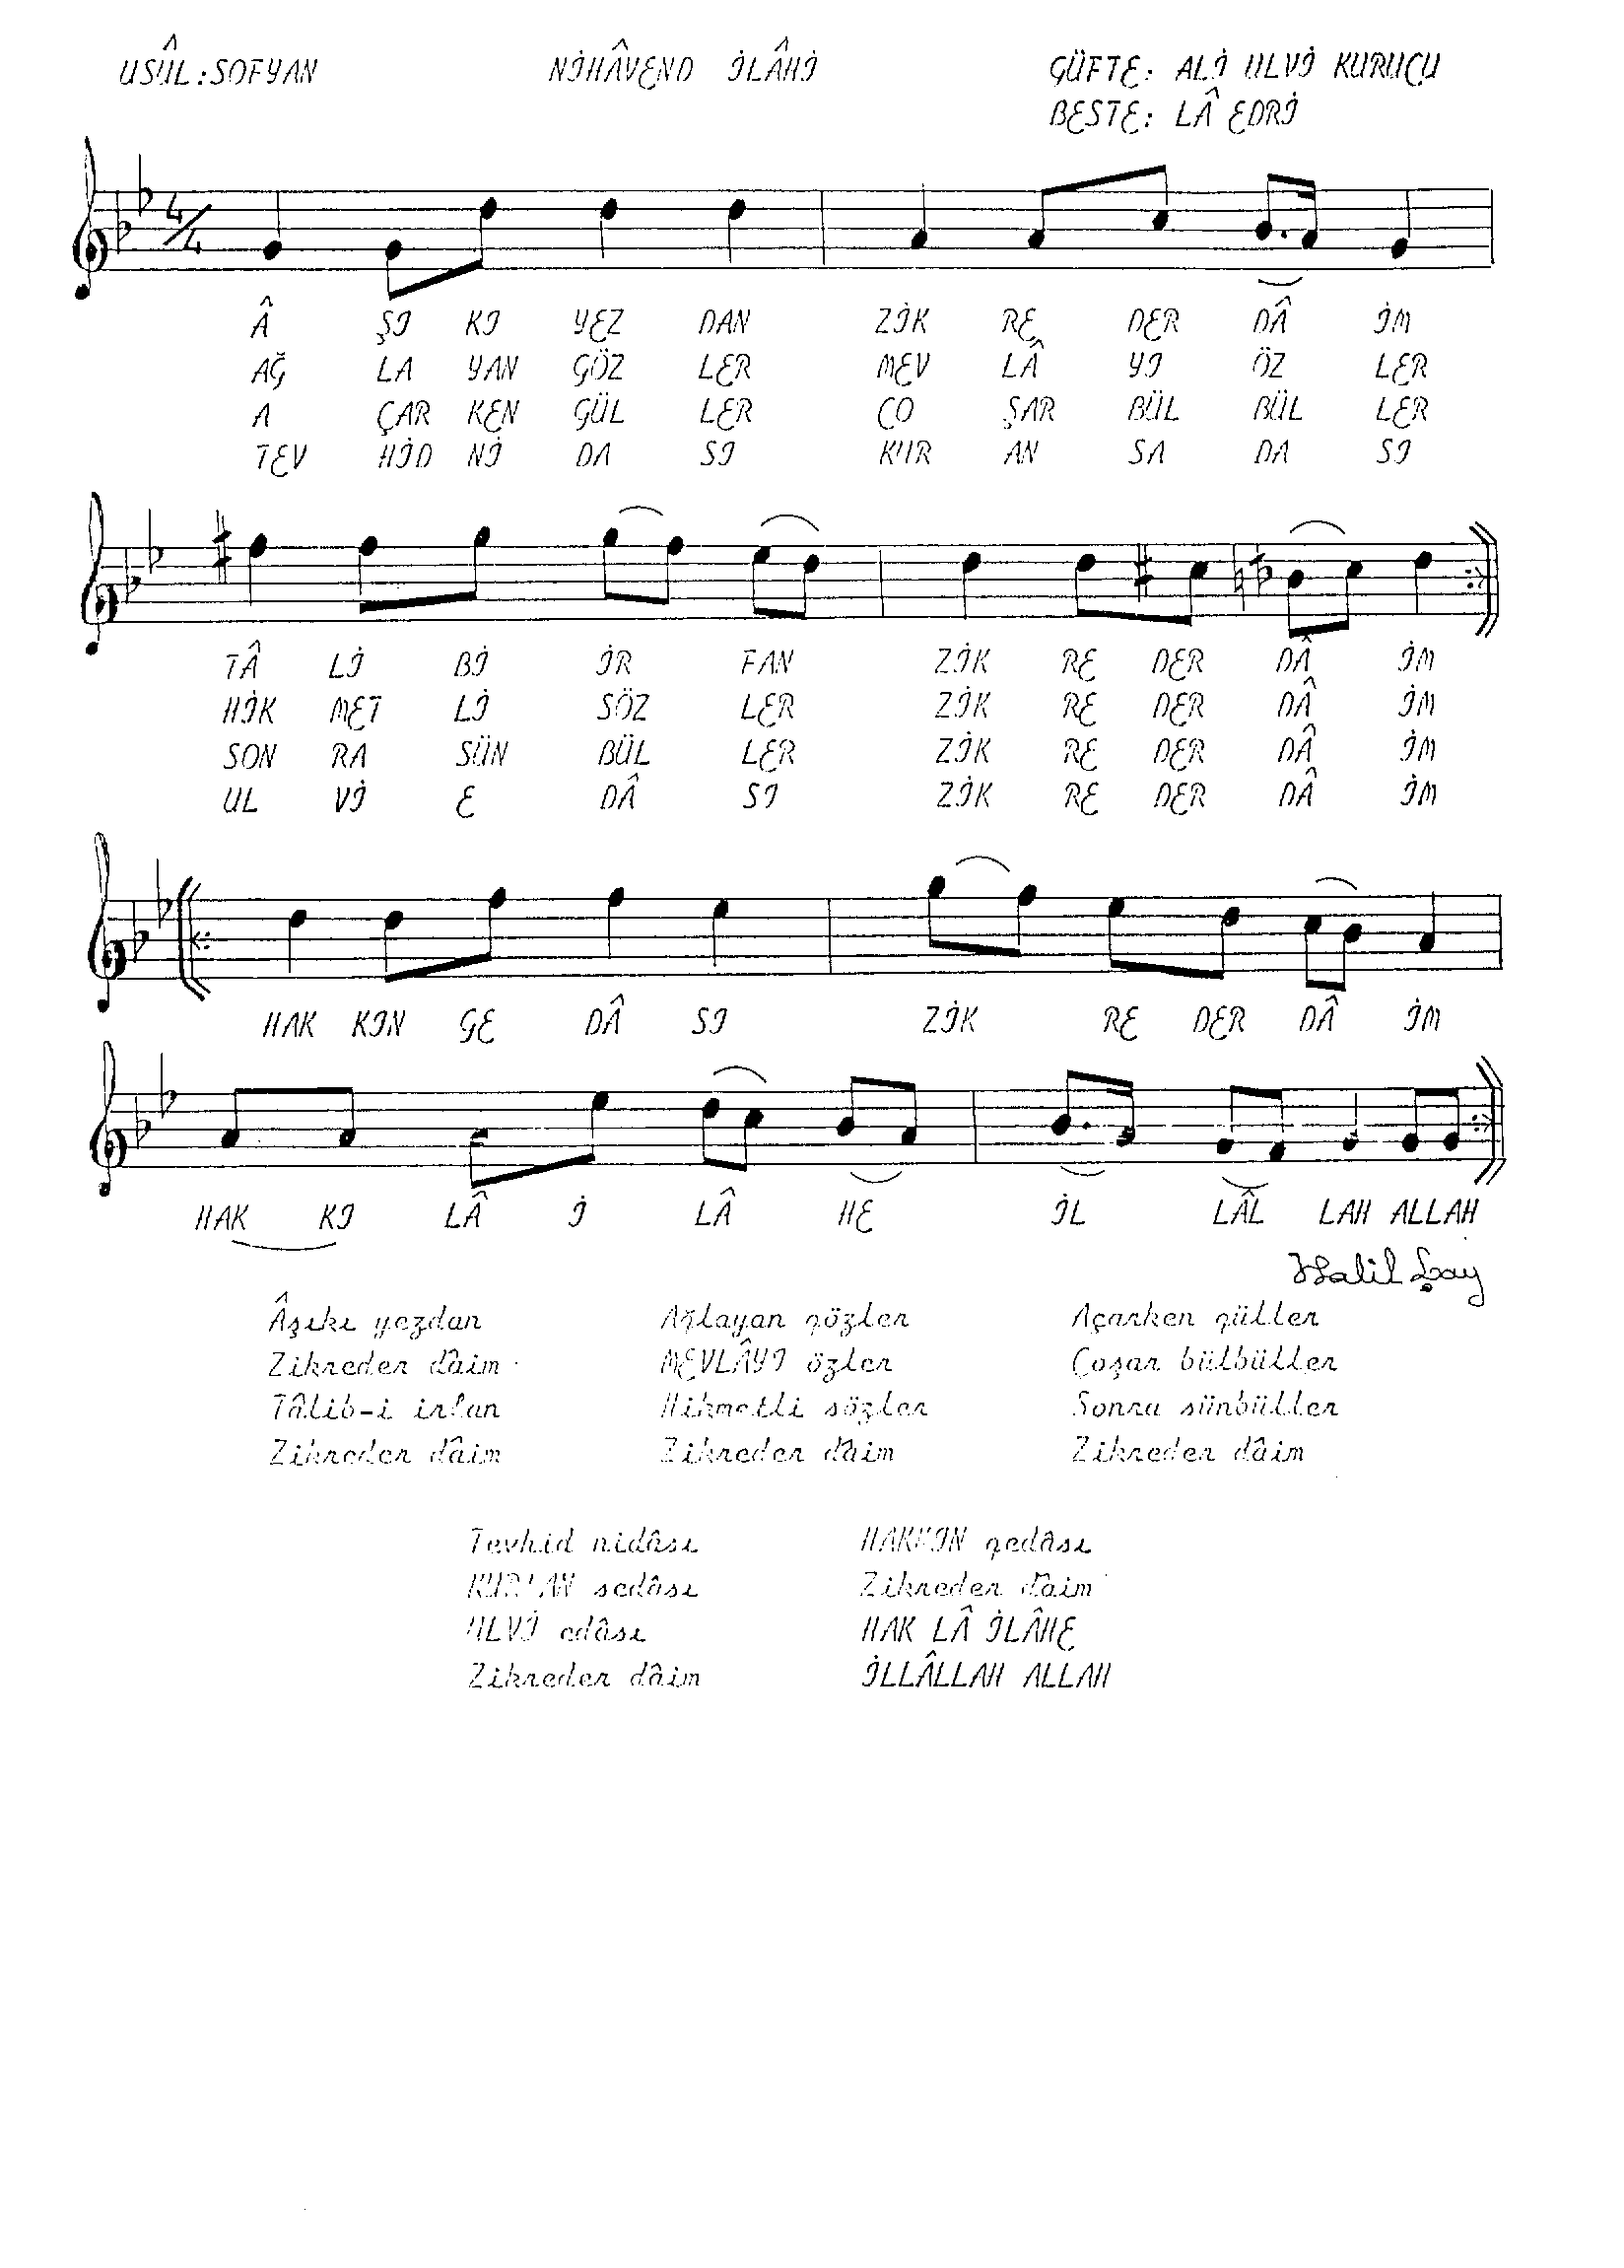 USÛL:SOFYAN NİHÂVEND İLÂHİ GÜFTE: ALİ ULVİ KURUCU
BESTE: LÂ EDRİ
4/4
Â ŞI KI YEZ DAN ZİK RE DER DÂ İM
AĞ LA YAN GÖZ LER MEV LÂ YI ÖZ LER
A ÇAR KEN GÜL LER ÇO ŞAR BÜL BÜL LER
TEV HİD Nİ DA SI KUR AN SA DA SI
TÂ Lİ Bİ İR FAN ZİK RE DER DÂ İM
HİK MET Lİ SÖZ LER ZİK RE DER DÂ İM
SON RA SÜN BÜL LER ZİK RE DER DÂ İM
UL Vİ E DÂ SI ZİK RE DER DÂ İM
HAK KIN GE DÂ SI ZİK RE DER DÂ İM
HAK KI LÂ İ LÂ HE İL LÂL LAH ALLAH
Halil Çay
Âşıkı yezdan
Zikreder dâim
Tâlib-i irfan
Zikreder dâim
Ağlayan gözler
MEVLÂYI özler
Hikmetli sözler
Zikreder dâim
Açarken güller
Çoşar bülbüller
Sonra sünbüller
Zikreder dâim
Tevhid nidâsı
KUR'AN sedâsı
ULVİ edâsı
Zikreder dâim
HAKKIN gedâsı
Zikreder dâim
HAK LÂ İLÂHE
İLLÂLLAH ALLAH